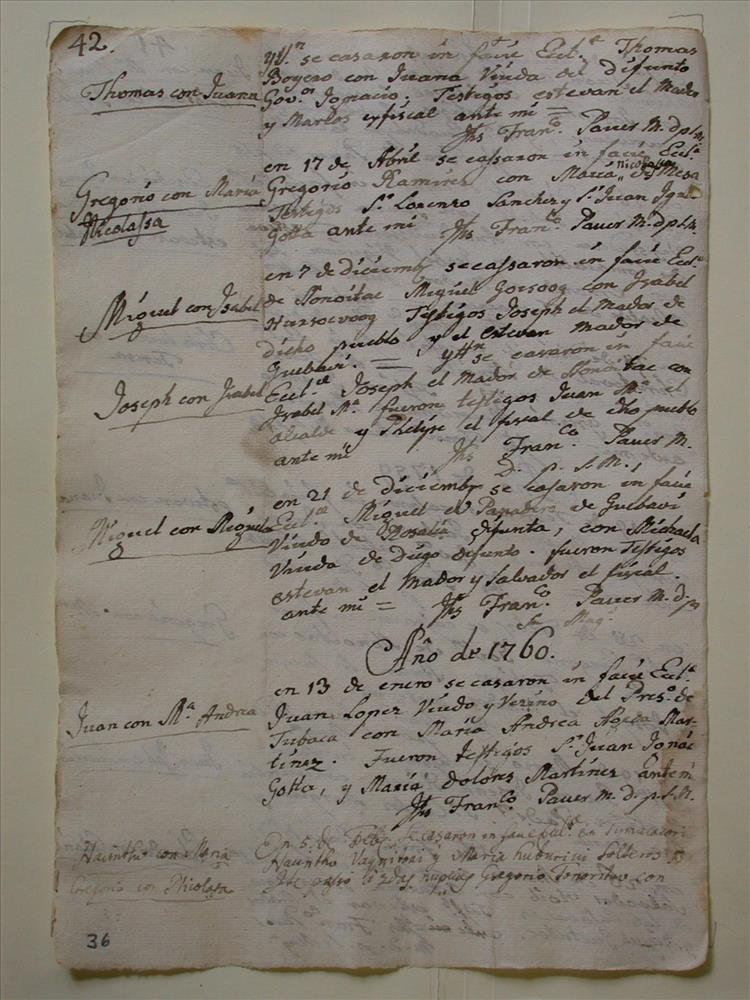 42.
Thomas con Juana
yttn. se casaron in facie Eccl.ę Thomas
Boyero con Juana Viuda del difunto
Gov.or Ignacio. Testigos estevan el Mador
y Marlos exfiscal ante mi =
Jhs Fran.co Pauer M. d p s. M.
Gregorio con Maria
Nicolassa
en 17 de Abril se cassaron in facie Eccl.a
Gregorio Ramires con Maria nicolassa de Mesa
Testigos S.r Lorenzo Sanches y S.r Juan Ign.
Gotta ante mi Jhs Fran.co Pauer M. d p. s. M.
Miguel con Isabel
en 7 de diciemb. se cassaron in facie Eccl.a
de Sonoitac Miguel Gorsoog con Isabel
Testigos Joseph el Mador de
dicho pueblo y el estevan mador de
Guebavi. = yttn se casaron in facie
Joseph con Isabel
Eccl.ae Joseph el Mador de Sonoitac con
Isabel M.a fueron testigos Juan M.a el
alcalde y Phelipe el fiscal de dho pueblo
ante mi Jhs Fran.co Pauer M.
D. p. s. M.
Miguel con Miguela
en 21 de diciembr. se casaron in facie
Eccl.ae Miguel el Panadero de Guebavi
Viudo de Rosalia difunta, con Michaela
Viuda de Diego difunto. fueron Testigos
estevan el Mador y Salvador el fiscal.
ante mi = Jhs Fran.co Pauer M. d. p.
Su Mag.
Año de 1760.
Juan con M.a Andrea
en 13 de enero se casaron in facie Eccl.a
Juan Lopez Viudo y Vezino del Pres.o de
Tubaca con Maria Andrea Rosa Mar-
tinez. Fueron testigos S.r Juan Ignac
Gotta, y Maria dolores Martines ante m
Jhs Fran.co Pauer M. D. p. s. M.
Hacintho con Maria
Gregorio con Nicolasa
En 5. de Febr. se casaron in facie Eccl.ae en Tumacacori
Hacintho y Maria Solteros
nupcias Gregorio con
36